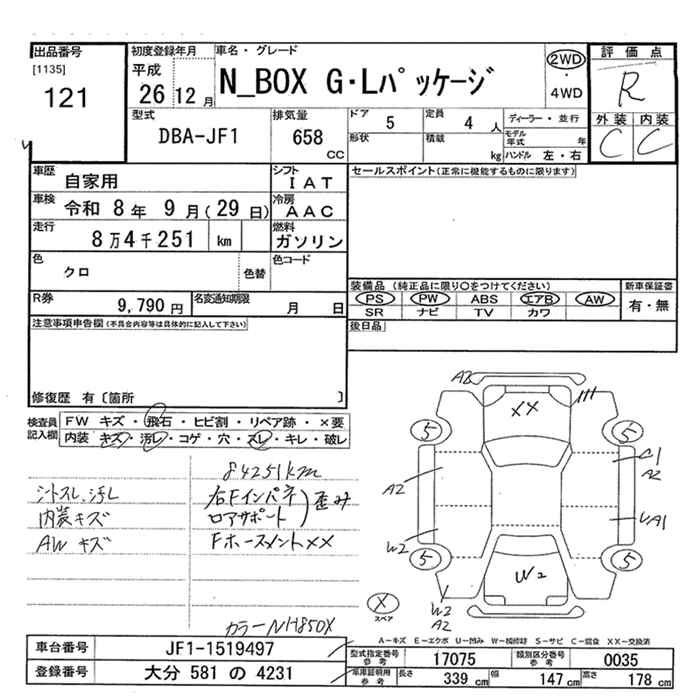 出品番号
[1135]
121
初度登録年月
平成
26 12 月
車名・グレード
N_BOX G・Lパッケージ
2WD
・
4WD
評価点
R
外装 内装
C C
型式
DBA-JF1
排気量
658
CC
ドア
5
定員
4 人
形状
積載
kg
ディーラー・並行
モデル年式 年
ハンドル 左・右
車歴
自家用
シフト
IAT
車検
令和 8 年 9 月 (29 日)
冷房
AAC
走行
8 万 4 千 251 km
燃料
ガソリン
色
クロ
色替
色コード
R券
9,790 円
名変通知期限
月 日
セールスポイント(正常に機能するものに限ります)
装備品 (純正品に限り○をつけてください)
PS PW ABS エアB AW
SR ナビ TV カワ
新車保証書
有・無
後日品
注意事項申告欄(不具合内容等は具体的に記入して下さい)
修復歴 有〔箇所 〕
検査員記入欄
FW キズ・飛石・ヒビ割・リペア跡・×要
内装 キズ・汚レ・コゲ・穴・スレ・キレ・破レ
84251km
シートスレ、汚レ
内装キズ
AW キズ
右Fインパネ
ロアサポート
歪み
Fホースメント××
カラーNH850X
A2
××
5
5
5
5
A2
W2
W2
A2
W2
C1
A2
UA1
×
スペア
A-キズ E-エクボ U-凹み W-補修跡 S-サビ C-腐食 XX-交換済
車台番号
JF1-1519497
登録番号
大分 581 の 4231
型式指定番号
参考
17075
類別区分番号
参考
0035
車庫証明用
参考
長さ
339 cm
幅
147 cm
高さ
178 cm